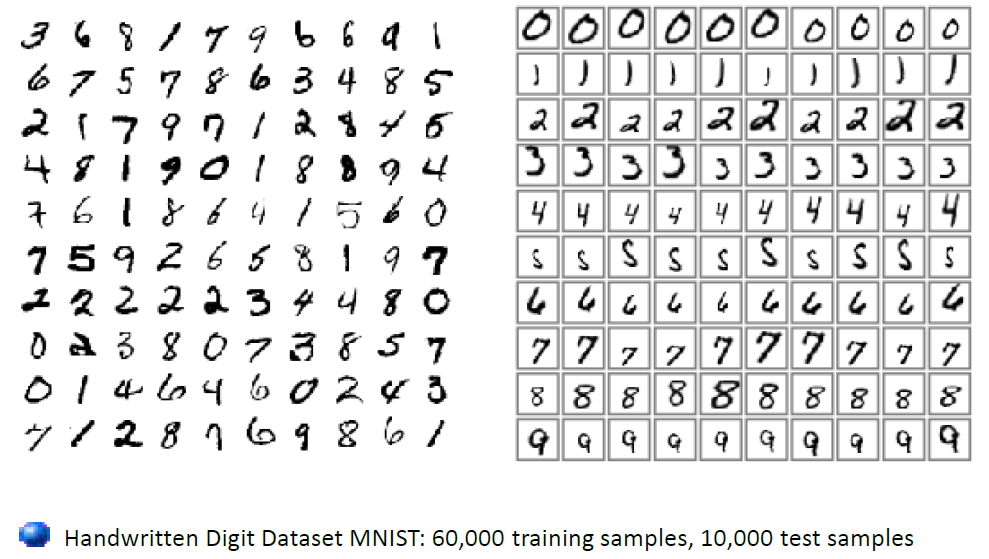 3 6 8 1 7 9 6 6 9 1
6 7 5 7 8 6 3 4 8 5
2 1 7 9 7 1 2 8 4 5
4 8 1 9 0 1 8 8 9 4
7 6 1 8 6 4 1 5 6 0
7 5 9 2 6 5 8 1 9 7
2 2 2 2 2 3 4 4 8 0
0 2 3 8 0 7 3 8 5 7
0 1 4 6 4 6 0 2 4 3
7 1 2 8 7 6 9 8 6 1
0 0 0 0 0 0 0 0 0 0
1 1 1 1 1 1 1 1 1 1
2 2 2 2 2 2 2 2 2 2
3 3 3 3 3 3 3 3 3 3
4 4 4 4 4 4 4 4 4 4
5 5 5 5 5 5 5 5 5 5
6 6 6 6 6 6 6 6 6 6
7 7 7 7 7 7 7 7 7 7
8 8 8 8 8 8 8 8 8 8
9 9 9 9 9 9 9 9 9 9
Handwritten Digit Dataset MNIST: 60,000 training samples, 10,000 test samples